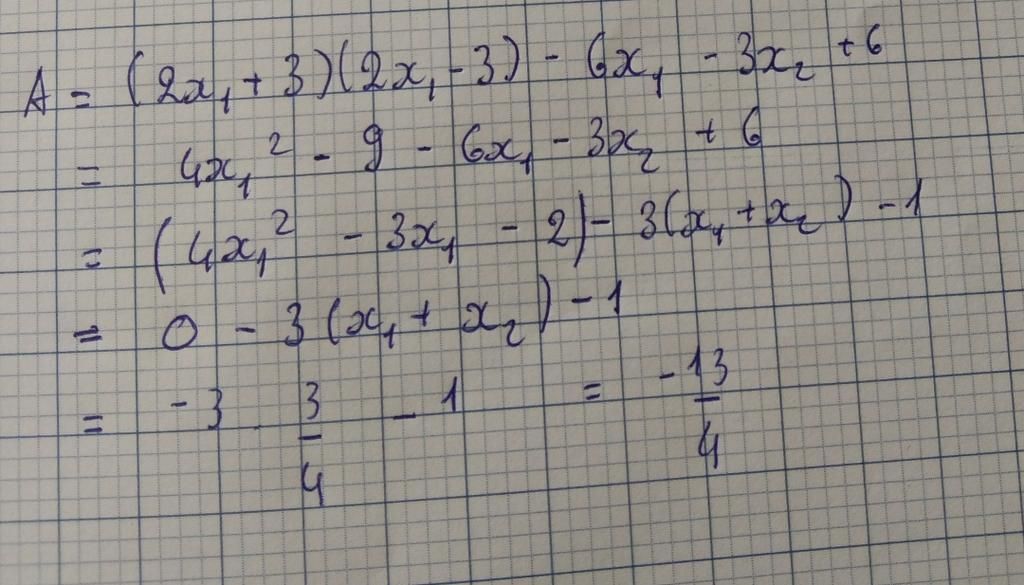 A = (2x₁ + 3)(2x₁ - 3) - 6x₁ - 3x₂ + 6
= 4x₁² - 9 - 6x₁ - 3x₂ + 6
= (4x₁² - 3x₁ - 2) - 3(x₁ + x₂) - 1
= 0 - 3(x₁ + x₂) - 1
= -3 . 3/4 - 1 = -13/4